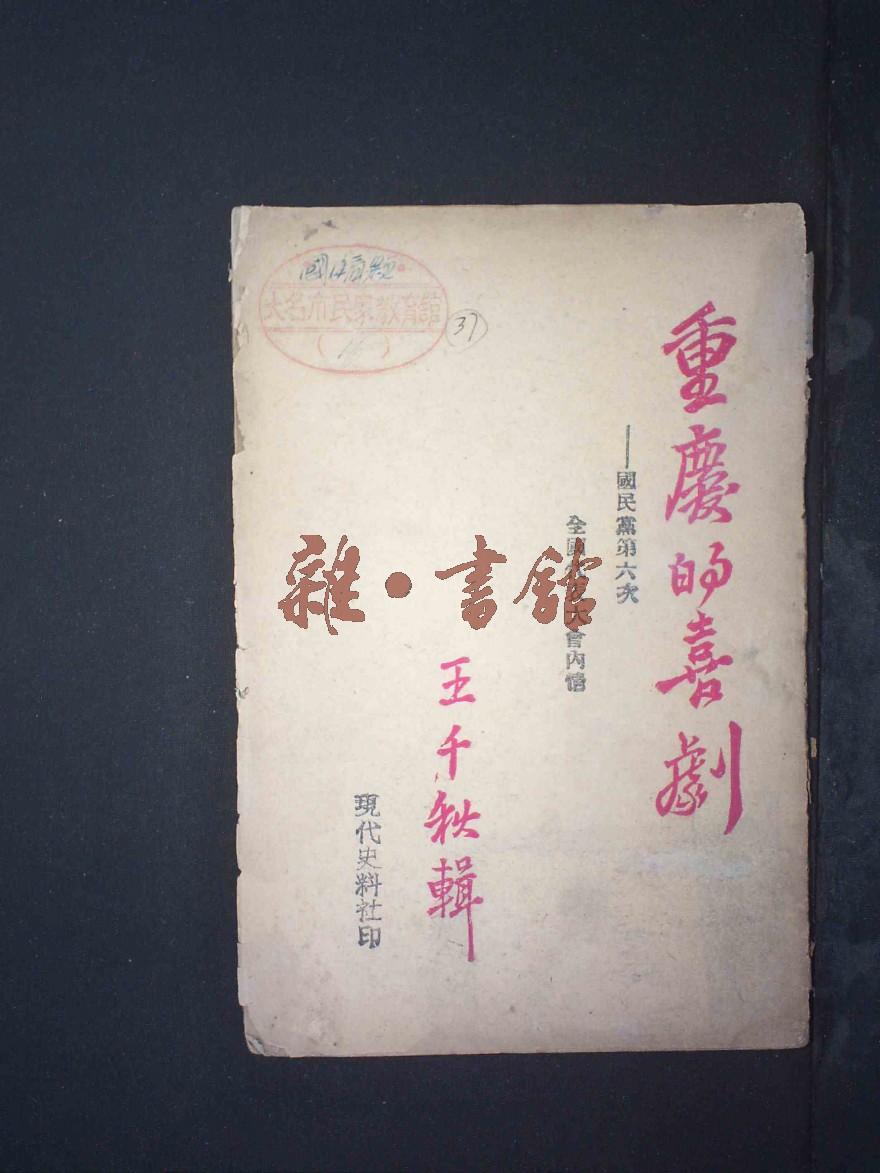 重慶的喜劇
——國民黨第六次
全國代表大會內情
王千秋輯
現代史料社印
國內問題
大名市民眾教育館
37
雜·書館